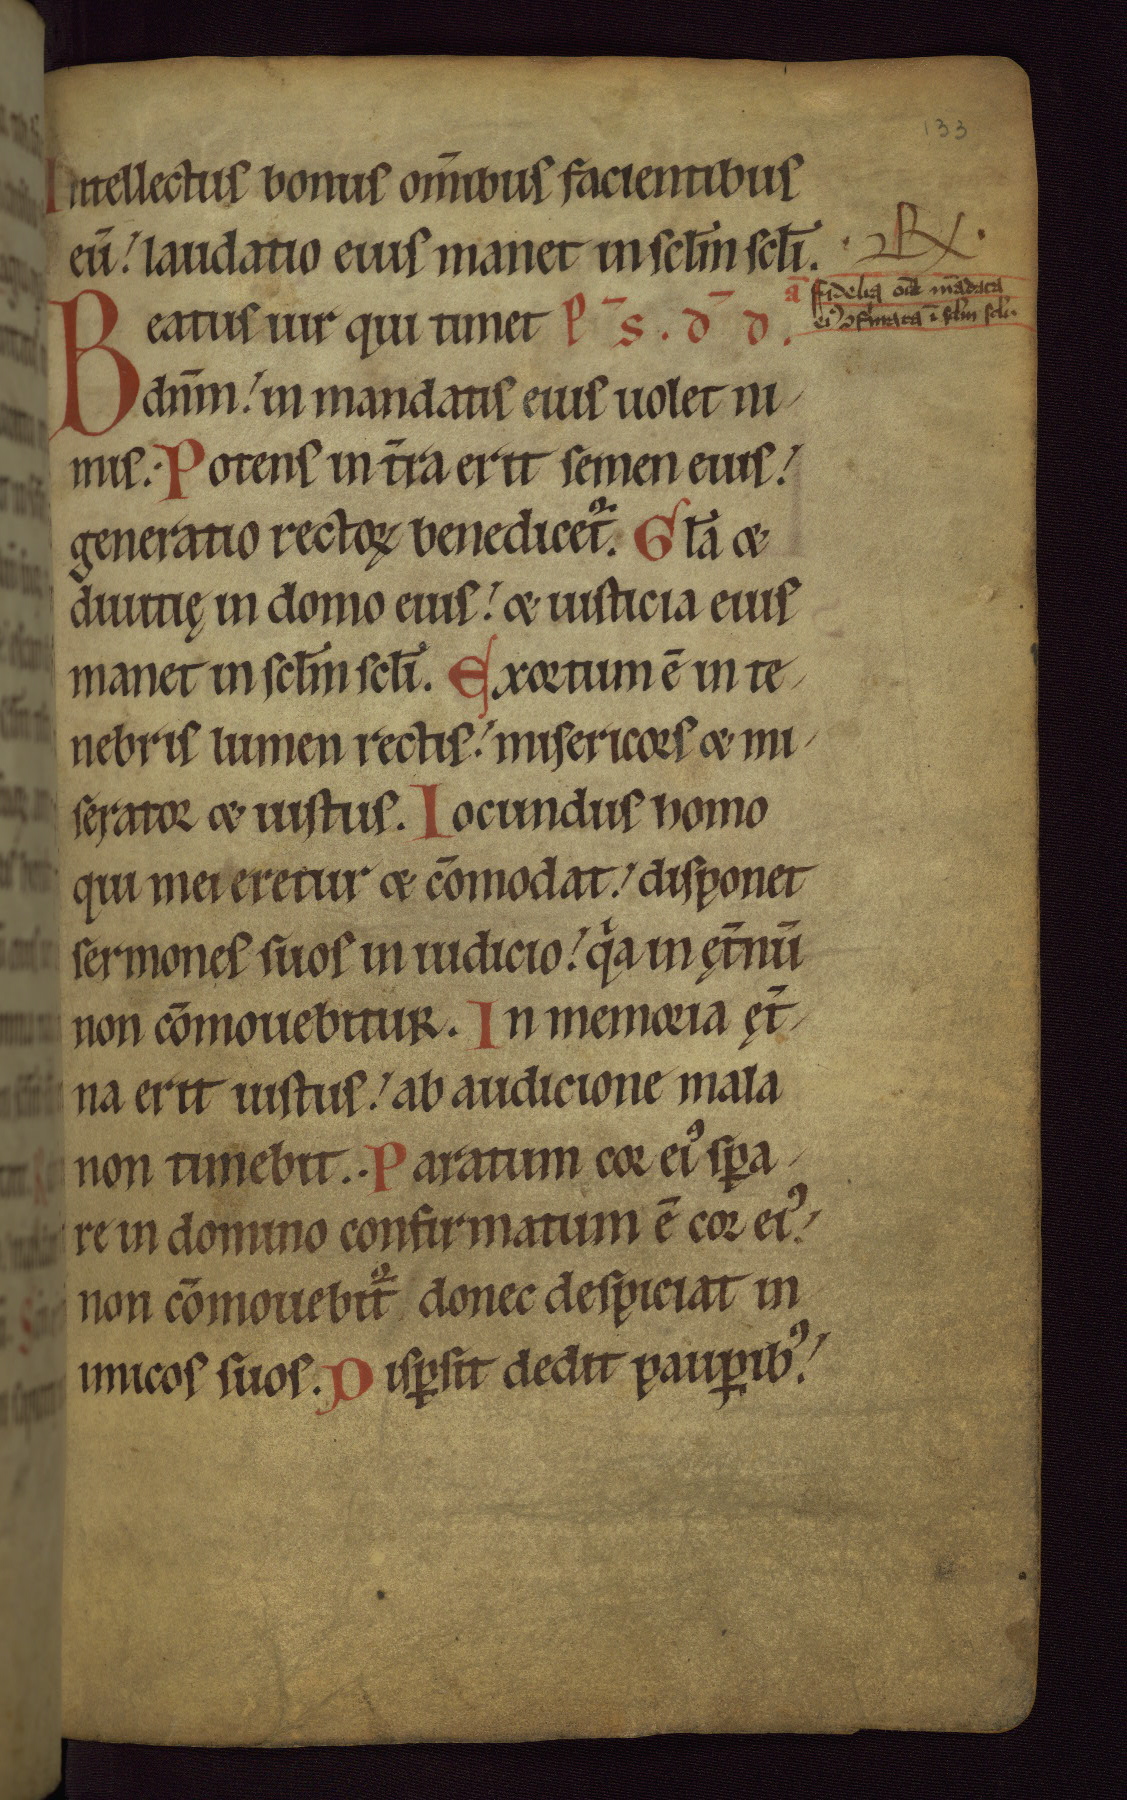 133
Intellectus bonus om̄ibus facientibus
eū! laudatio eius manet in scl̄m scl̄i.
Beatus uir qui timet
ā Fidelia
dn̄m! in mandatis eius uolet ni
mis. Potens in t̄ra erit semen eius!
generatio rectoꝝ benedicet᷑. Gl̄a &
diuitię in domo eius! & iusticia eius
manet in scl̄m scl̄i. Exortum ē in te
nebris lumen rectis! misericors & mi
serator & iustus. Iocundus homo
qui mei eretur & cōmodat! disponet
sermones suos in iudicio! qͥa in ęt̄nū
non cōmouebitur. In memoria ęt̄
na erit iustus! ab audicione mala
non timebit. Paratum cor eiꝰ sꝑa
re in domino confirmatum ē cor eiꝰ!
non cōmouebit᷑ donec despiciat in
imicos suos. Disꝑsit dedit pauꝑibꝰ!